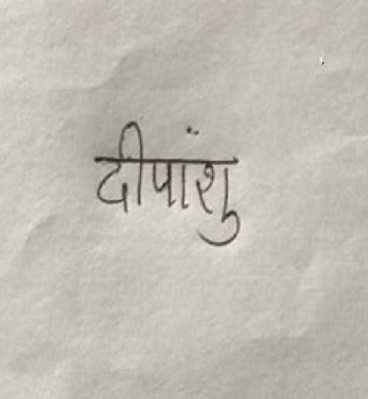 दीपांशु